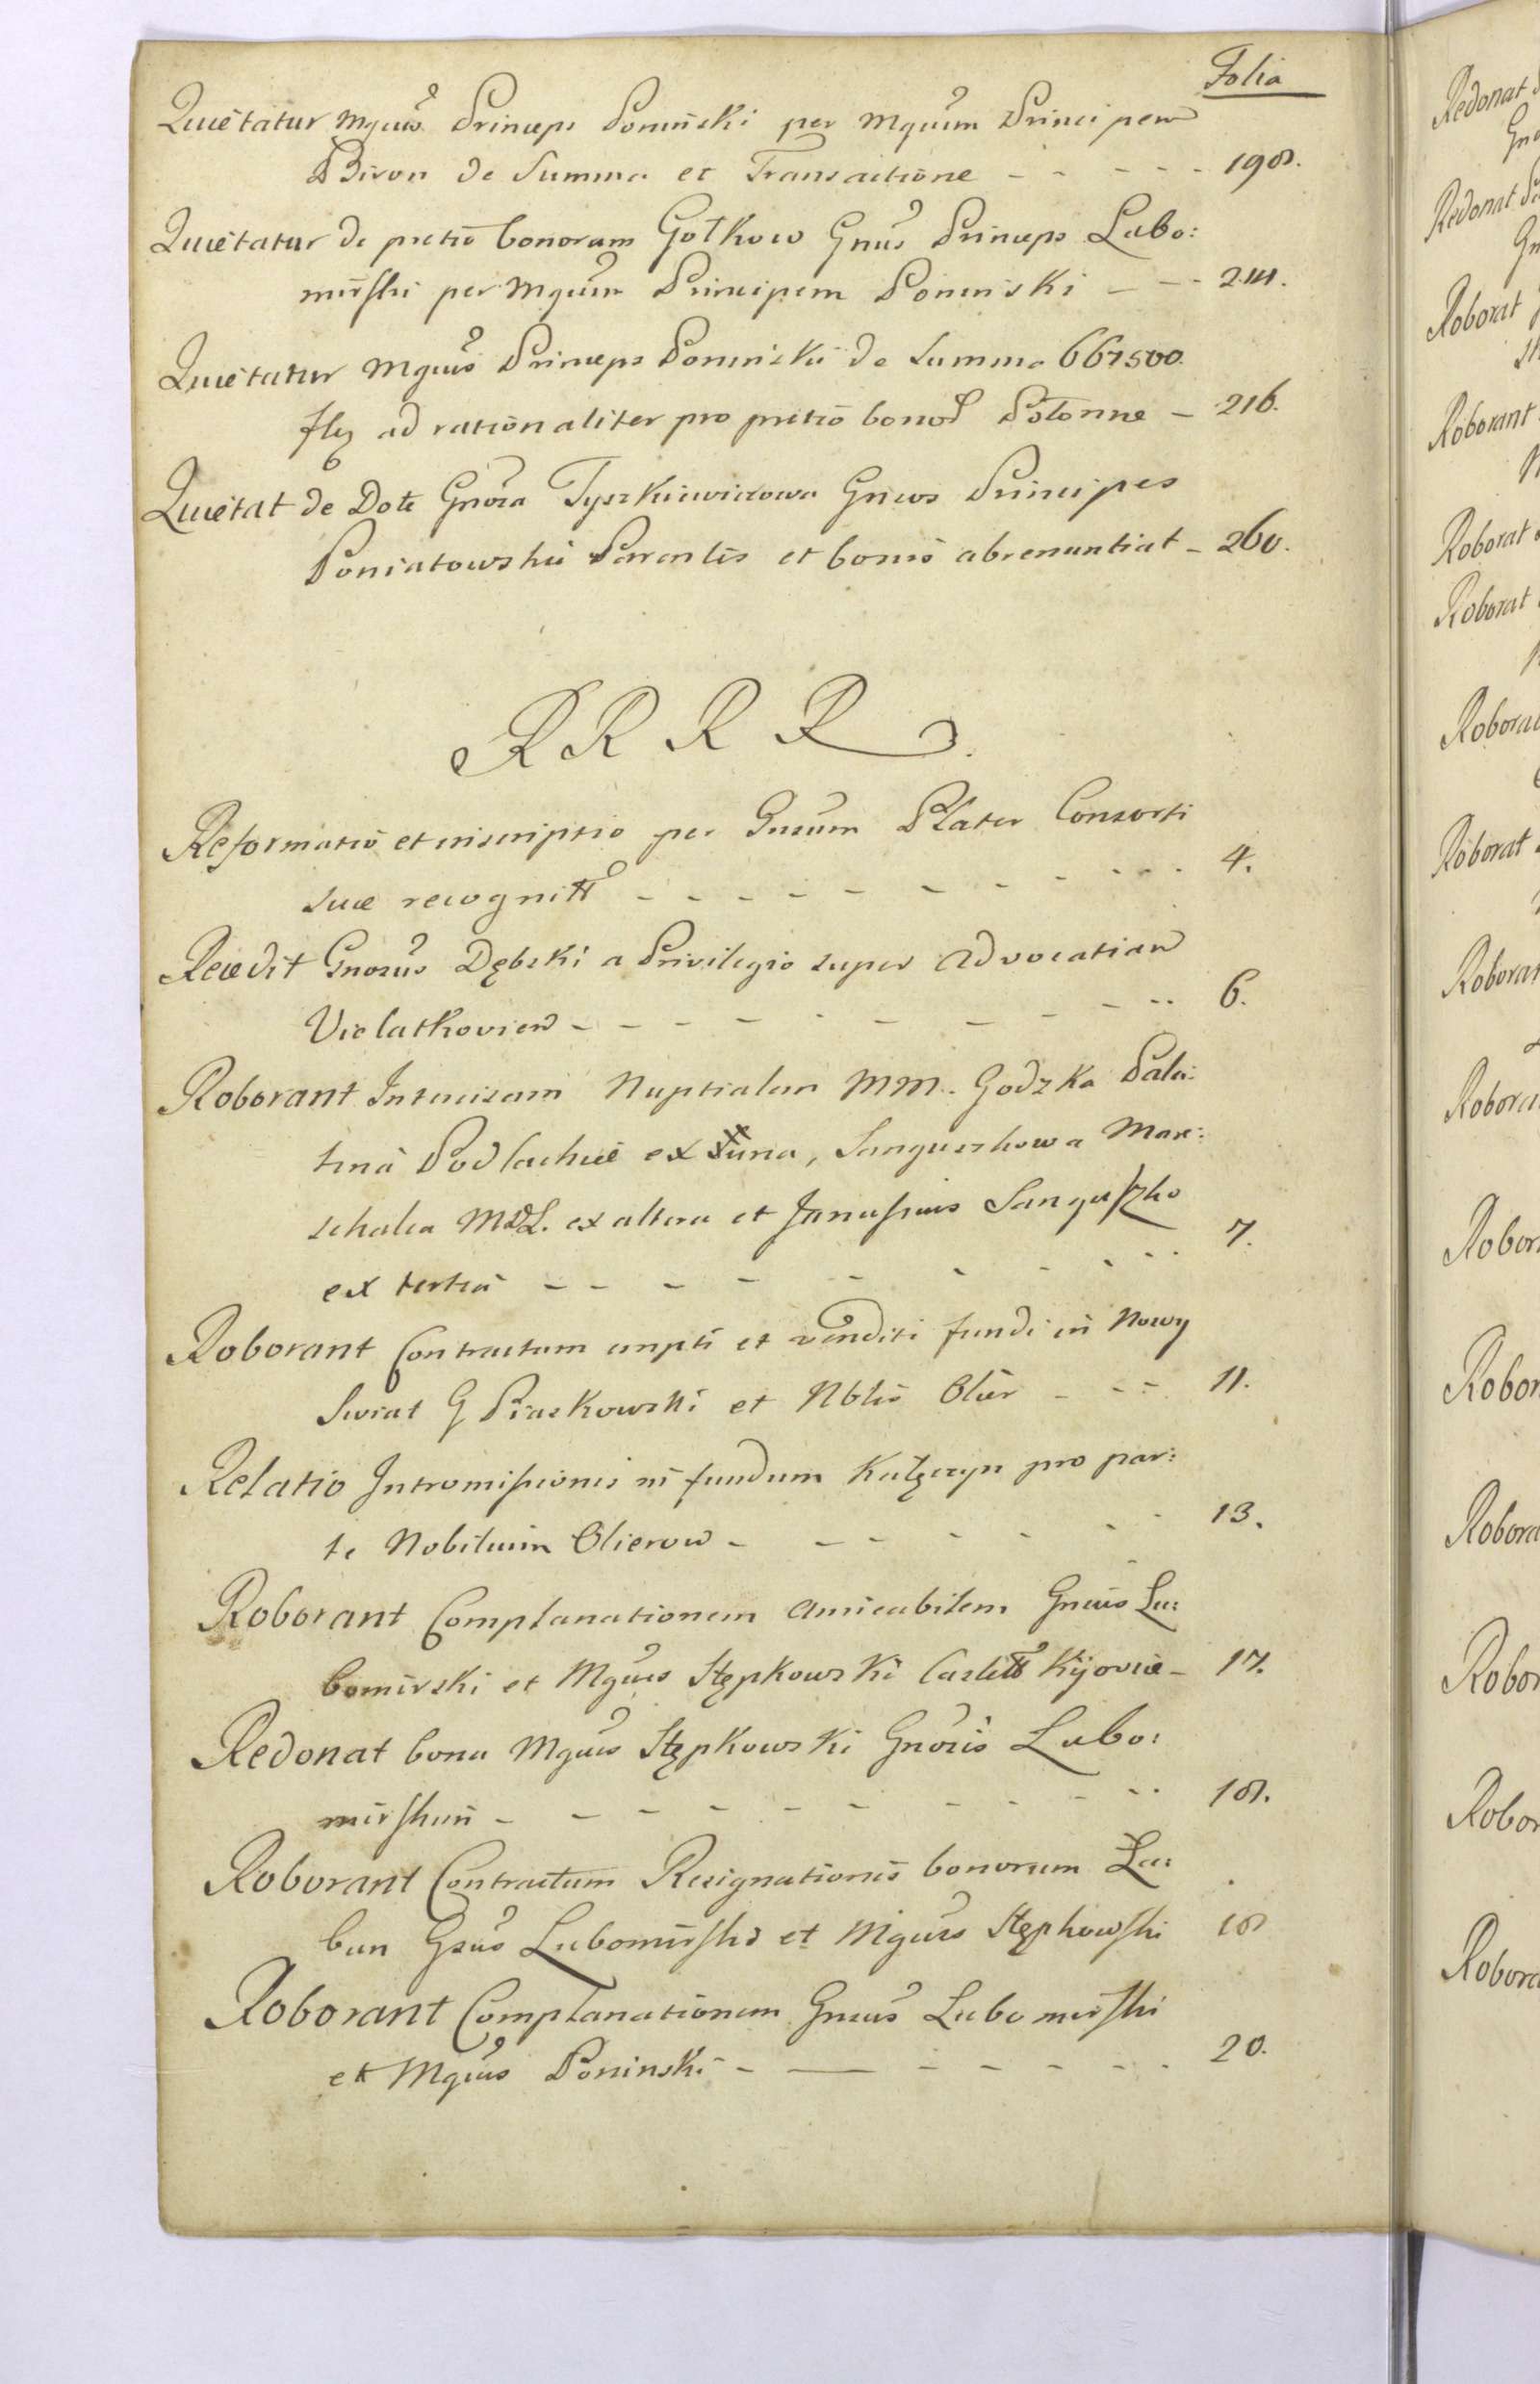 Folia
Quietatur Mgnus Princeps Poninski per Mgnum Principem
Biron de Summa et Transactione - - - - - 198.
Quietatur de pretio bonorum Gołkow Gnus Princeps Lubo:
mirski per Mgnum Principem Poninski - - - 214.
Quietatur Mgnus Princeps Poninski de Summa 667500.
flz ad rationaliter pro pretio bonor Połonne - 216.
Quietat de Dote Gnosa Tyszkiewiczowa Gnios Principes
Poniatowskie Parentes et bonis abrenuntiat - 260.
R R R R.
Reformatio et inscriptio per Gnsum Plater Consorti
suæ recognitt - - - - - - - - - - 4.
Recedit Gnosus Dębski a Privilegio super Advocatiam
Vielatkoviem - - - - - - - - - - 6.
Roborant Intercisam Nuptialem MM. Godzka Pala:
tina Podlachiæ ex una, Sanguszkowa Mare:
schalca MDL. ex altera et Janussius Sanguszko
ex tertia - - - - - - - - - 7.
Roborant Contractum empti et venditi fundi in Nowy
Swiat G Piaskowski et Nblis Olier - - - 11.
Relatio Intromissionis in fundum Kałęczyn pro par:
te Nobilium Olierow - - - - - - - 13.
Roborant Complanationem amicabilem Gnius Lu:
bomirski et Mgnus Stępkowski Castell Kijoviæ - 17.
Redonat bona Mgnus Stępkowski Gnosis Lubo:
mirskim - - - - - - - - - - 18.
Roborant Contractum Resignationis bonorumŁa:
bun Gsus Lubomirski et Mgnus Stępkowski 18
Roborant Complanationem Gnsus Lubomirski
et Mgnus Poninski - - - - - - - 20.
Redonat
Redonat
Roborat
Roborant
Roborat
Roborat
Roborat